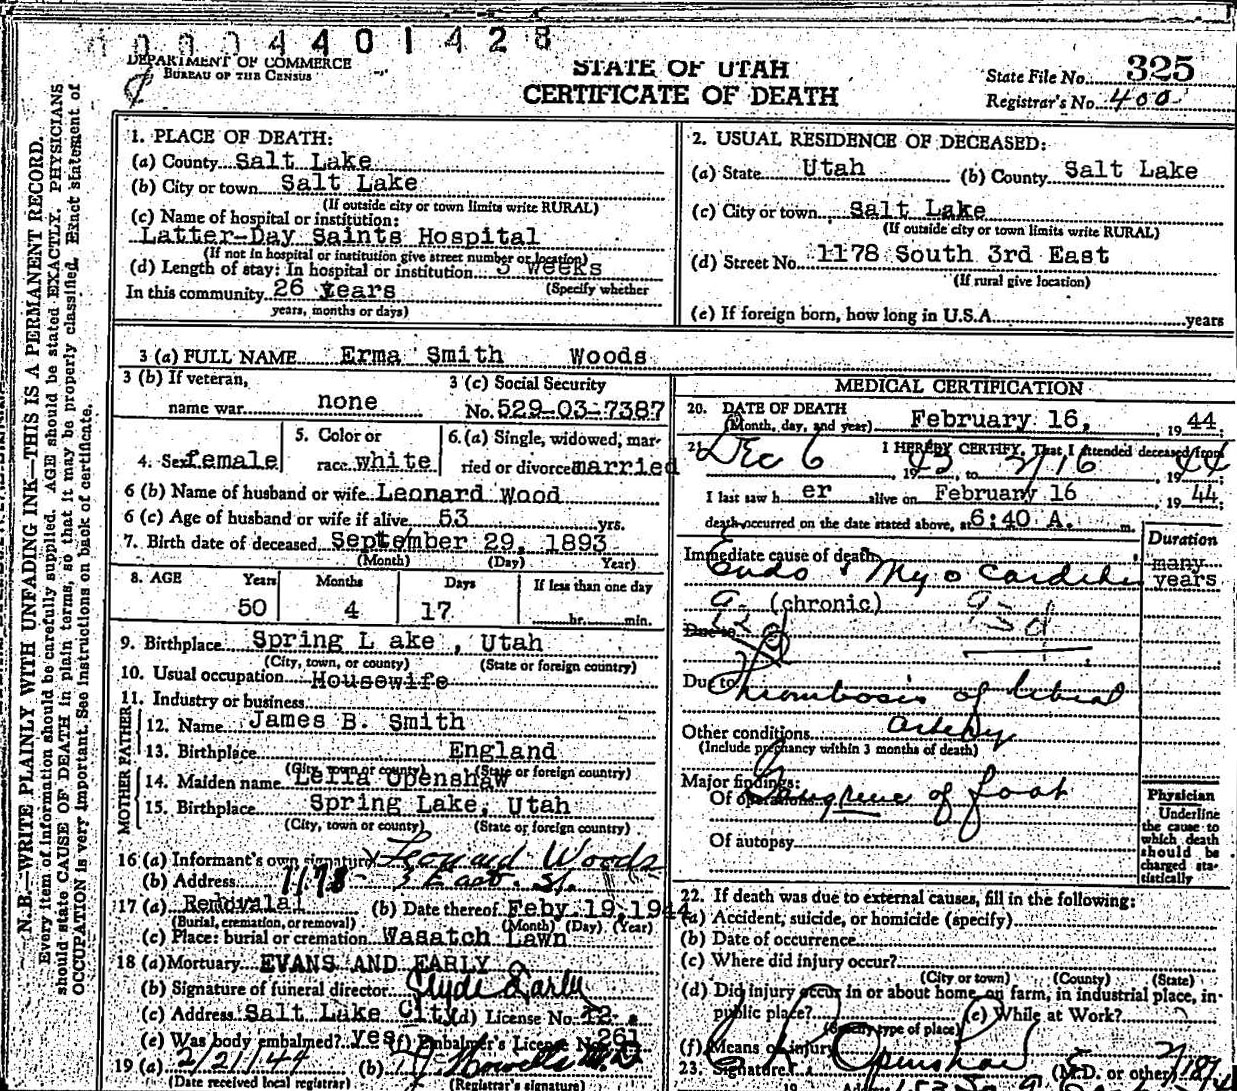 0004401428
DEPARTMENT OF COMMERCE
BUREAU OF THE CENSUS
STATE OF UTAH
CERTIFICATE OF DEATH
State File No. 325
Registrar's No. 400
N.B.—WRITE PLAINLY WITH UNFADING INK—THIS IS A PERMANENT RECORD.
Every item of information should be carefully supplied. AGE should be stated EXACTLY. PHYSICIANS
should state CAUSE OF DEATH in plain terms, so that it may be properly classified. Exact statement of
OCCUPATION is very important. See instructions on back of certificate.
1. PLACE OF DEATH:
(a) County Salt Lake
(b) City or town Salt Lake
(If outside city or town limits write RURAL)
(c) Name of hospital or institution:
Latter-Day Saints Hospital
(If not in hospital or institution give street number or location)
(d) Length of stay: In hospital or institution 3 weeks
In this community 26 years (Specify whether
years, months or days)
2. USUAL RESIDENCE OF DECEASED:
(a) State Utah (b) County Salt Lake
(c) City or town Salt Lake
(If outside city or town limits write RURAL)
(d) Street No. 1178 South 3rd East
(If rural give location)
(e) If foreign born, how long in U.S.A. years
3 (a) FULL NAME Erma Smith Woods
3 (b) If veteran,
name war none
3 (c) Social Security
No. 529-03-7387
4. Sex female
5. Color or
race white
6. (a) Single, widowed, mar-
ried or divorced married
6 (b) Name of husband or wife Leonard Wood
6 (c) Age of husband or wife if alive 53 yrs.
7. Birth date of deceased September 29, 1893
(Month) (Day) (Year)
8. AGE Years Months Days If less than one day
50 4 17 hr. min.
9. Birthplace Spring Lake, Utah
(City, town, or county) (State or foreign country)
10. Usual occupation Housewife
11. Industry or business
FATHER
12. Name James B. Smith
13. Birthplace England
(City, town or county) (State or foreign country)
MOTHER
14. Maiden name Openshaw
15. Birthplace Spring Lake, Utah
(City, town or county) (State or foreign country)
16 (a) Informant's own signature Leonard Woods
(b) Address 1178 3 East. St.
17 (a) Removal (b) Date thereof Feby. 19, 1944
(Burial, cremation, or removal) (Month) (Day) (Year)
(c) Place: burial or cremation Wasatch Lawn
18 (a) Mortuary EVANS AND EARLY
(b) Signature of funeral director Clyde Early
(c) Address Salt Lake City (d) License No. 12
(e) Was body embalmed? yes (f) Embalmer's License No. 261
19 (a) 2/21/44 (b)
(Date received local registrar) (Registrar's signature)
MEDICAL CERTIFICATION
20. DATE OF DEATH
(Month, day, and year) February 16, 1944;
21. I HEREBY CERTIFY, That I attended deceased from
Dec 6 1943, to 2/16, 1944
I last saw her alive on February 16 1944;
death occurred on the date stated above, at 6:40 A. m.
Duration
Immediate cause of death
Endo & Myocarditis many
years
(chronic) 93d
Due to
Due to Thrombosis of tibial
artery
Other conditions
(Include pregnancy within 3 months of death)
Major findings:
Of operations Gangrene of foot
Of autopsy
Physician
Underline
the cause to
which death
should be
charged sta-
tistically
22. If death was due to external causes, fill in the following:
(a) Accident, suicide, or homicide (specify)
(b) Date of occurrence
(c) Where did injury occur?
(City or town) (County) (State)
(d) Did injury occur in or about home, on farm, in industrial place, in-
public place? (e) While at Work?
(Specify type of place)
(f) Means of injury
23. Signature Openshaw (M.D. or other)